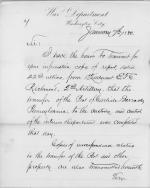 War Department
Washington City
January 7th, 180
Sir:
I have the honor to transmit for
your information copy of report, dated
22nd ultimo, from Lieutenant E. T. C.
Richmond, 2nd Artillery, that
the transfer of the Post of Carlisle Barracks
Pennsylvania to the custody and control
of the Interior Department was completed
that day.
Copies of correspondence relative
to the transfer of the Post and other
property are also transmitted herewith
Very